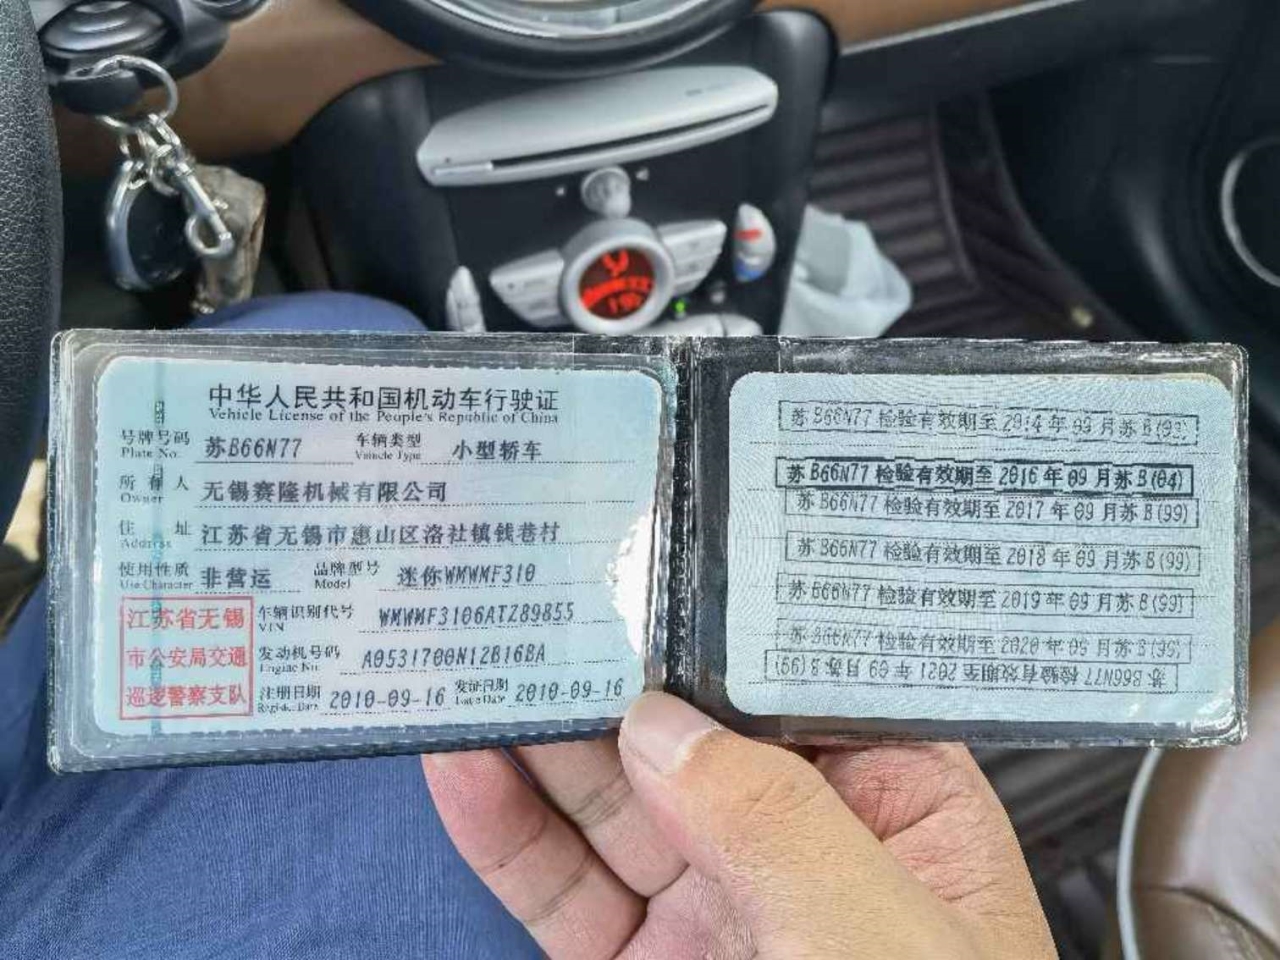 中华人民共和国机动车行驶证
Vehicle License of the People's Republic of China
号牌号码 Plate No. 苏B66N77 车辆类型 Vehicle Type 小型轿车
所有人 Owner 无锡赛隆机械有限公司
住址 Address 江苏省无锡市惠山区洛社镇钱巷村
使用性质 Use Character 非营运 品牌型号 Model 迷你WMWMF310
车辆识别代号 VIN WMWMF3106ATZ89855
发动机号码 Engine No. A0531700N12B16BA
注册日期 Register Date 2010-09-16 发证日期 Issue Date 2010-09-16
江苏省无锡
市公安局交通
巡逻警察支队
苏B66N77 检验有效期至 2014 年 09 月苏 B(93)
苏 B66N77 检验有效期至 2016 年 09 月苏 B(04)
苏 B66N77 检验有效期至 2017 年 09 月苏 B(99)
苏 B66N77 检验有效期至 2018 年 09 月苏 B(99)
苏 B66N77 检验有效期至 2019 年 09 月苏 B(99)
苏 B66N77 检验有效期至 2020 年 09 月苏 B(99)
苏 B66N77 检验有效期至 2021 年 09 月苏 B(99)